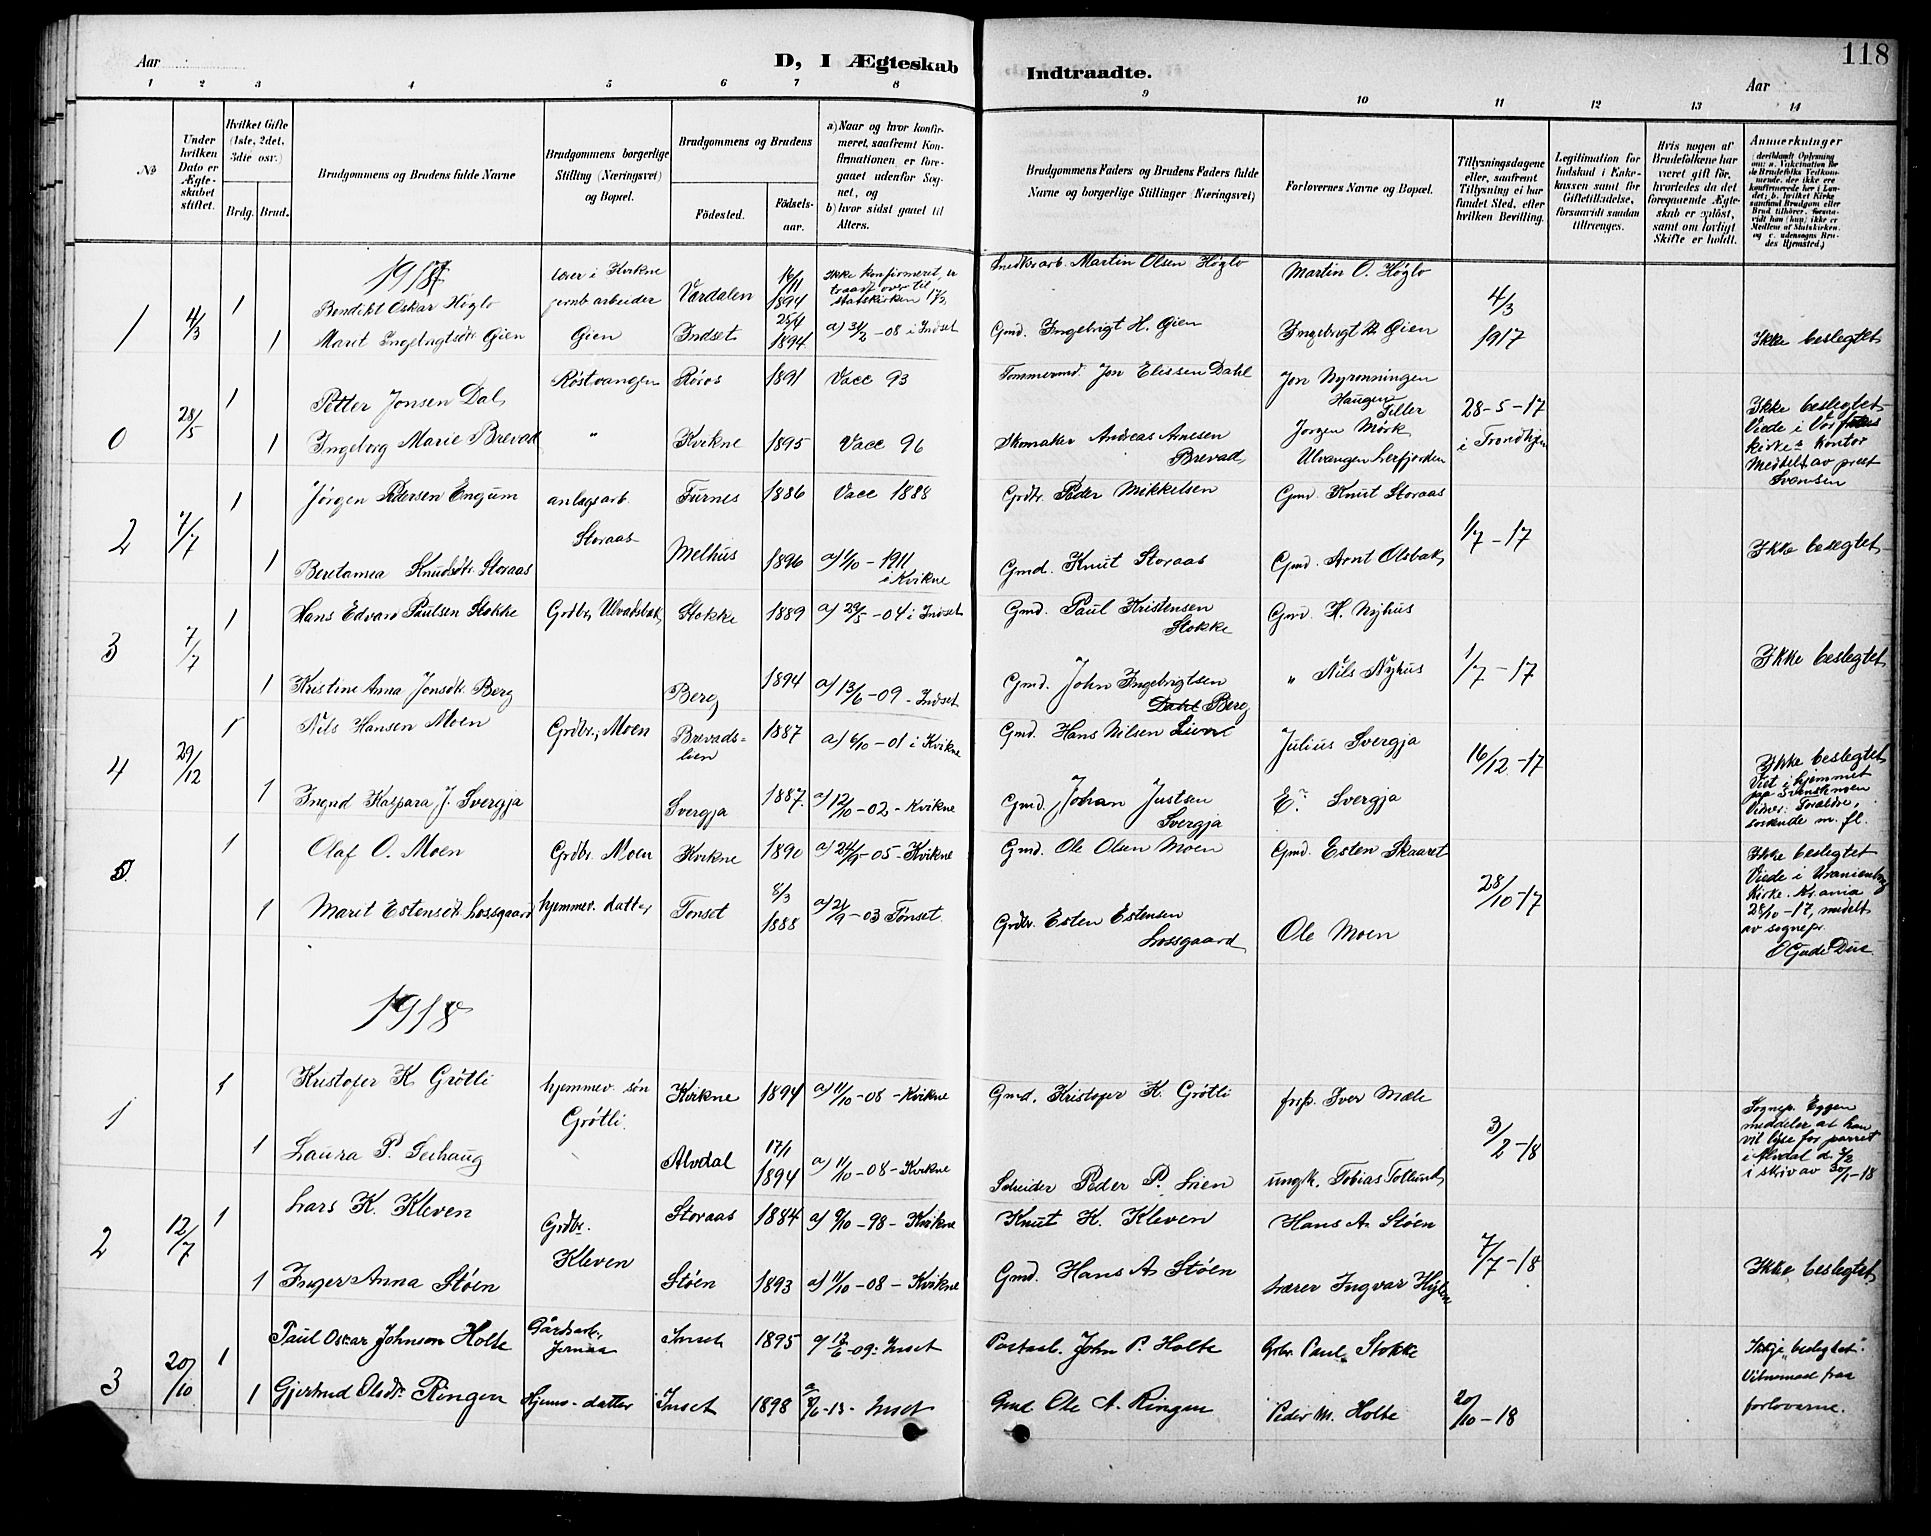 118
Aar
D, I Ægteskab Indtraadte.
Aar
1 2 3 4 5 6 7 8 9 10 11 12 13 14
No
Under hvilken Dato er Ægteskabet stiftet.
Hvilket Gifte (1ste, 2det, 3die osv.)
Brdg. Brud.
Brudgommens og Brudens fulde Navne
Brudgommens borgerlige Stilling (Næringsvei) og Bopæl.
Brudgommens og Brudens
Födested. Födselsaar.
a) Naar og hvor konfirmeret, saafremt Konfirmationen er foregaaet udenfor Sognet, og
b) hvor sidst gaaet til Alters.
Brudgommens Faders og Brudens Faders fulde Navne og borgerlige Stillinger (Næringsvei)
Forlovernes Navne og Bopæl.
Tillysningsdagene eller, saafremt Tillysning ei har fundet Sted, efter hvilken Bevilling.
Legitimation for Indskud i Enkekassen samt for Giftetilladelse, forsaavidt saadan tiltrænges.
Hvis nogen af Brudefolkene har været gift för, hvorledes da det foregaaende Ægteskab er oplöst, samt om lovligt Skifte er holdt.
Anmerkninger
(deriblandt Oplysning om: a. Vakcination for de Brudefolks Vedkommende, der ikke ere konfirmerede her i Landet; b. hvilket Kirkesamfund Brudgom eller Brud tilhörer, forsaavidt han (hun) ikke er Medlem af Statskirken og c. udensogns Brudes Hjemsted.)
1917
1 4/3 1 Bendikt Oskar Høglo jernb arbeider Værdalen 16/11 1894 Ikke konfirmeret, traadt over til statskirken Snedkerarb. Martin Olsen Høglo Martin O. Høglo 4/3 1917
1 Marit Ingebrigtsdtr Gien Gien Indset 1894 i Indset Gmd. Ingebrigt H. Gien Ingebrigt H. Gien Ikke beslegtet
0 28/5 1 Petter Jonsen Dal Røstvangen Röros 1891 Vacc 93 Tømmermd. Jon Elissen Dahl Jon Nyrønningen Haugen Tiller 28-5-17 i Trondhjem
1 Ingeborg Marie Brevad " Kvikne 1895 Vacc 96 Skomaker Andreas Arnesen Brevad Jørgen Mørk Ulvangen Leirfjorden
Ikke beslegtet
Viede i Vor frues kirkes kontor
Meddelt av prest Svensen
2 7/7 1 Jörgen Pedersen Engum anlagsarb. Storaas Furnes 1886 Vacc 1888 Grdbr. Peder Mikkelsen Gmd. Knut Storaas 1/7-17
1 Beretanea Knudsdtr Storaas Melhus 1896 a) 1/10-1911 i Kvikne Gmd. Knut Storaas Gmd. Arnt Olsbak Ikke beslegtet
3 7/7 1 Hans Edvard Paulsen Stokke Grdbr, Ulvadsbak Stokke 1889 a) 29/5-04 i Indset Gmd. Paul Kristensen Stokke Gmd. H. Nyhus 1/7-17
1 Kristine Anna Jonsdtr Berg Berg 1894 a) 13/6-09 - Indset Gmd. John Ingebrigtsen Dahl Berg " Nils Nyhus Ikke beslegtet
4 29/12 1 Nils Hansen Moen Grdbr; Moen Brevadslien 1887 a) 6/10-01 i Kvikne Gmd. Hans Nilsen Julius Svergja 16/12-17
1 Ingrid Kaspara J. Svergja Svergja 1887 a) 12/10-02-Kvikne Gmd. Johan Justsen Svergja E. Svergja
Ikke beslegtet
Viet i hjemmet paa Svenskmoen
Vitner: foraldre, søskende m. fl.
5 1 Olaf O. Moen Grdbr. Moen Kvikne 1890 a) 24/9-05-Kvikne Gmd. Ole Olsen Moen Gmd. Esten Skaaret 28/10-17
1 Marit Estensdtr Lossgaard hjemmev. datter Tønset 8/3 1888 -03 Tønset. Grdbr. Esten Estensen Lossgaard Ole Moen
Ikke beslegtet
Viede i Uranienborg Kirke. Kr.ania 28/10-17, medelt av sognepr. O Gude Due
1918
1 1 Kristofer K Grötli hjemmev. søn Grötli. Kvikne 1894 a) 11/10-08-Kvikne Gmd. Kristofer K. Grötli forp. Iver Mæle 3/2-18
1 Laura P. Seehaug Alvdal 17/1 1894 a) 11/10-08-Kvikne Peder P. Lien ungk. Tobias Totlund
Sognepr. Eggen meddeler at han vil lyse for parret i Alvdal d. 3/2 i skriv av 30/1-18
2 12/7 1 Lars K. Kleven Grdbr. Kleven Storaas 1884 a) 9/10-98-Kvikne Knut K. Kleven Hans A. Stöen 7/7-18
1 Inger Anna Stöen Stöen 1893 a) 11/10-08-Kvikne Gmd. Hans A. Støen Lærer Ingvar Ikke beslegtet
3 20/10 1 Paul Oscar Johnson Holte Gårdsarb. Inset 1895 -09: Inset Postaab. John P. Holte Grbr. Paul Stokke 20/10-18
1 Gjertrud Olsdtr. Ringen Hjems-datter Inset 1898 -13- Inset Gmd Ole A. Ringen Peder M. Holte
Ikkje "beslegtet".
Vitnemaal fraa forlovarne.